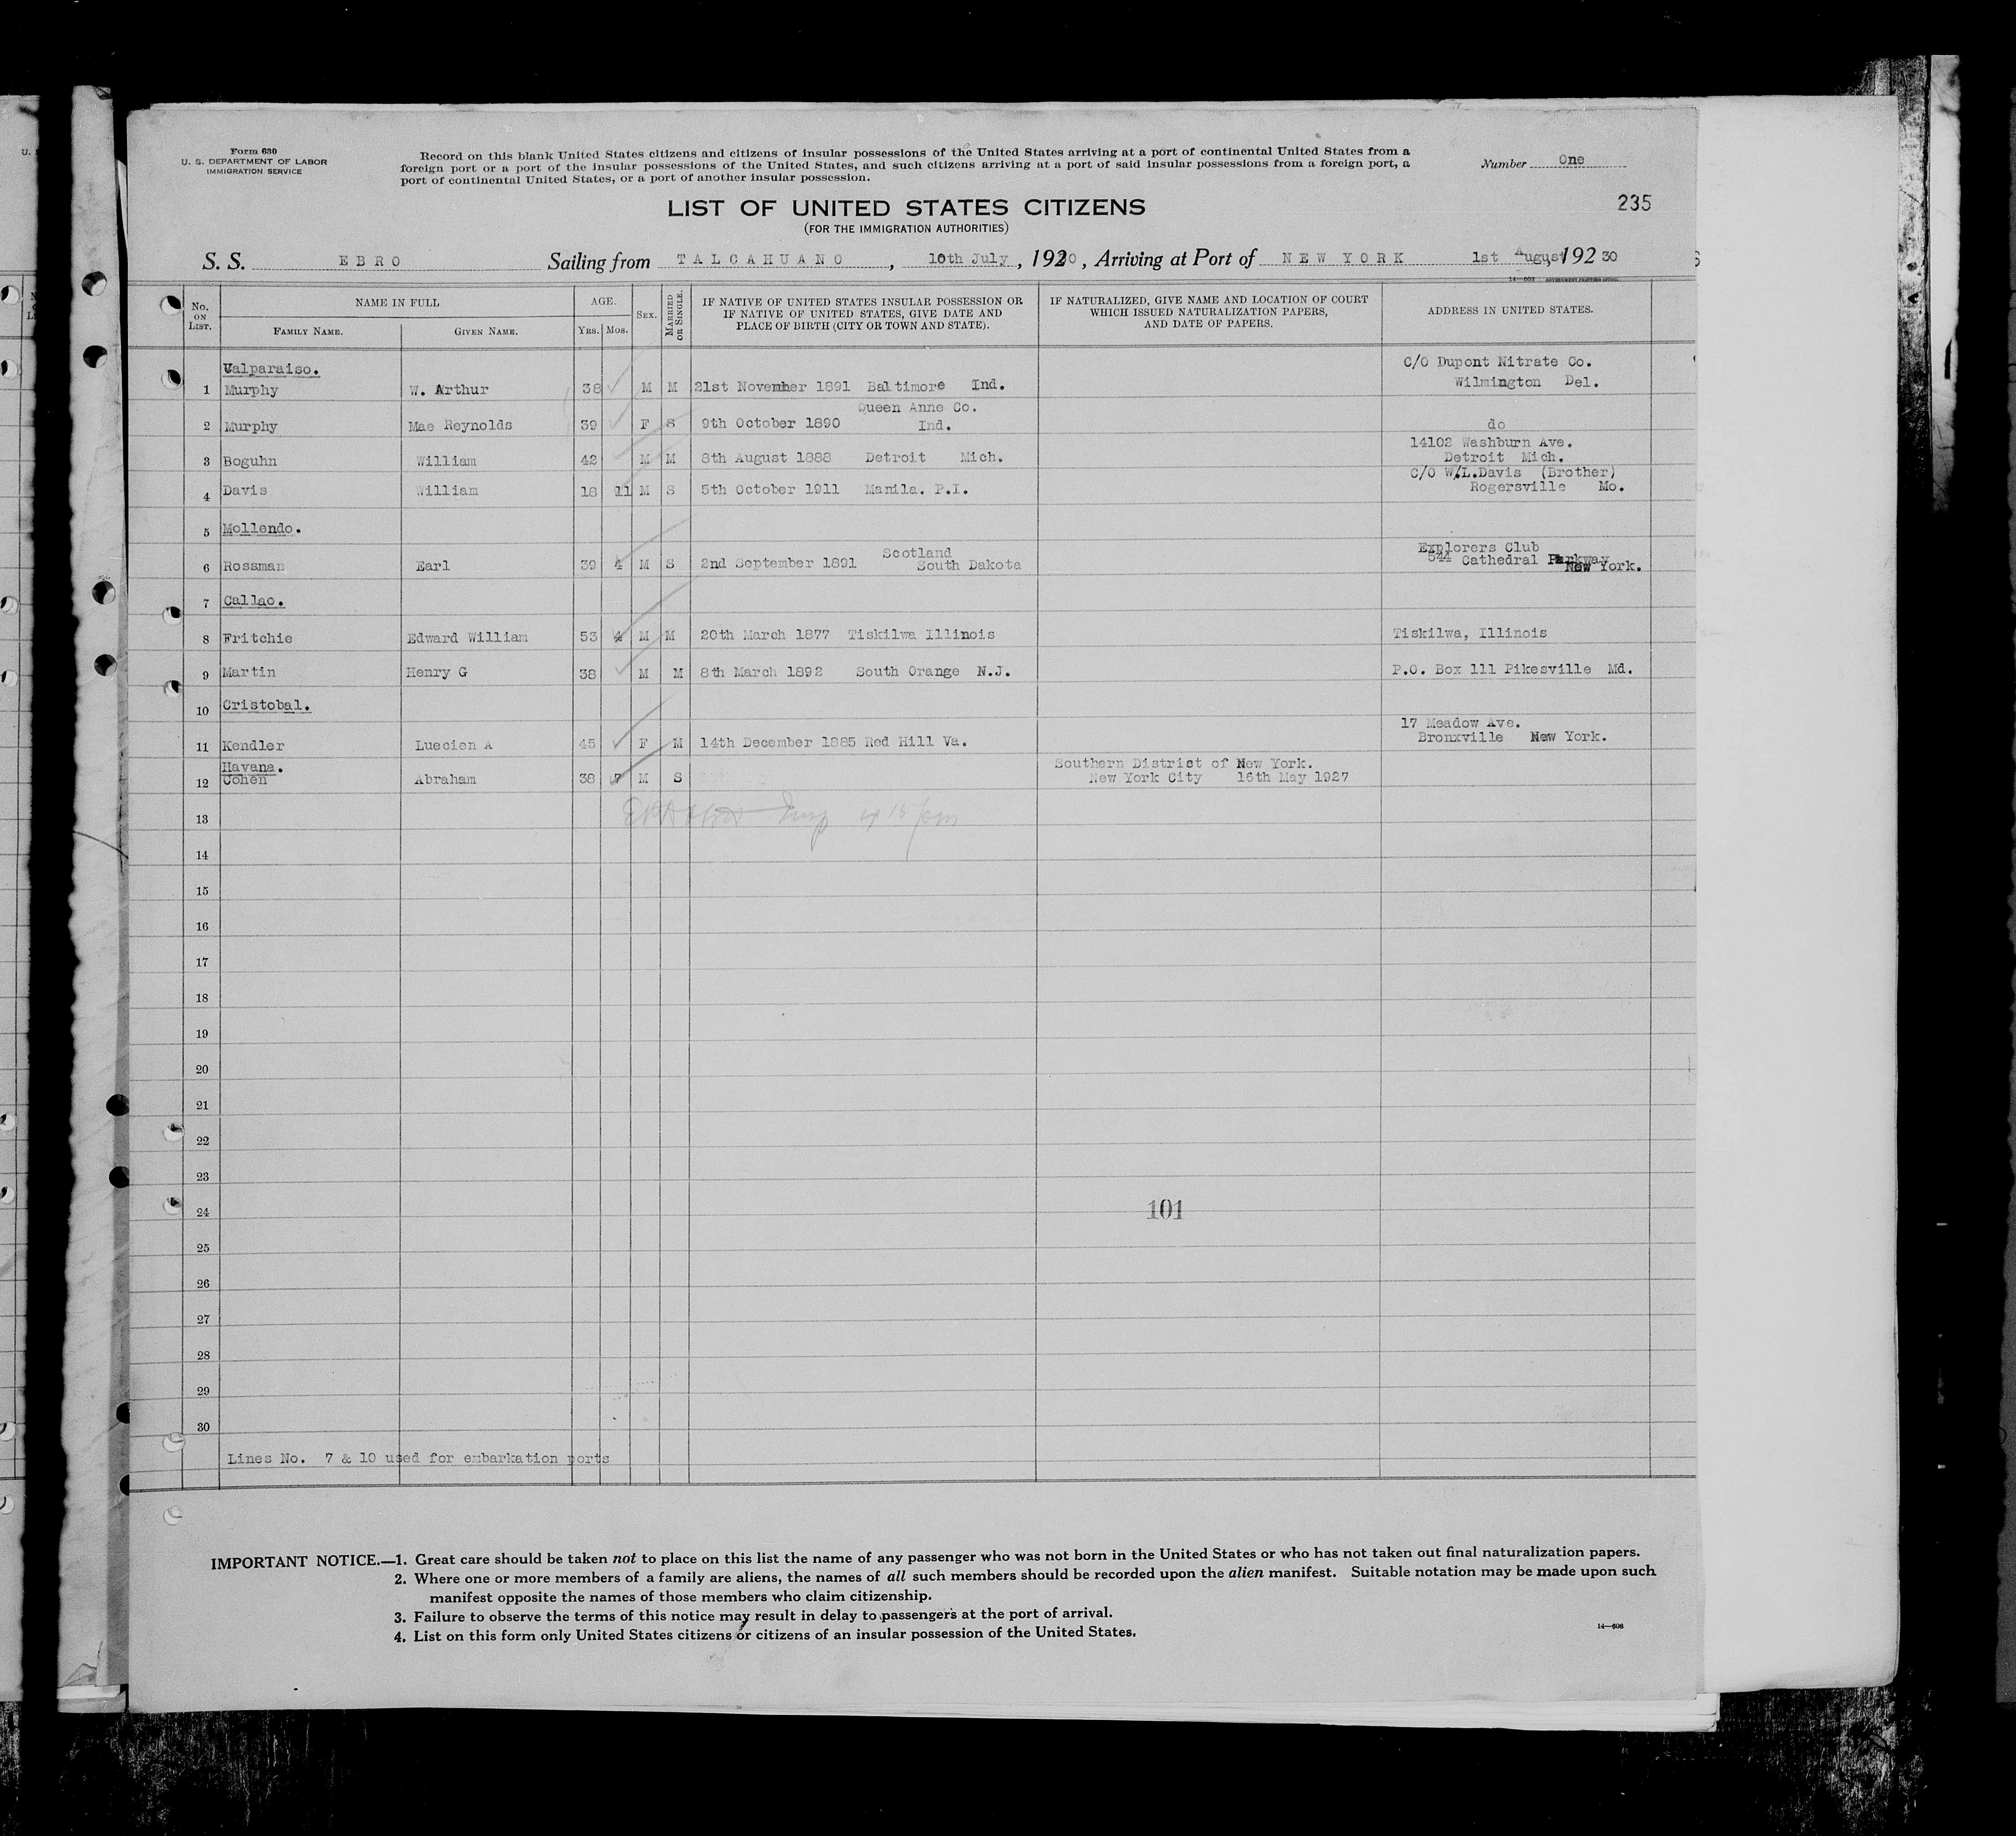 Form 630
U. S. DEPARTMENT OF LABOR
IMMIGRATION SERVICE
Record on this blank United States citizens and citizens of insular possessions of the United States arriving at a port of continental United States from a
foreign port or a port of the insular possessions of the United States, and such citizens arriving at a port of said insular possessions from a foreign port, a
port of continental United States, or a port of another insular possession.
Number One
235
LIST OF UNITED STATES CITIZENS
(FOR THE IMMIGRATION AUTHORITIES)
S. S. EBRO Sailing from TALCAHUANO, 10th July, 1930, Arriving at Port of NEW YORK 1st August, 192 30
No. ON LIST. NAME IN FULL FAMILY NAME. GIVEN NAME. AGE. YRS. MOS. SEX. MARRIED OR SINGLE. IF NATIVE OF UNITED STATES INSULAR POSSESSION OR IF NATIVE OF UNITED STATES, GIVE DATE AND PLACE OF BIRTH (CITY OR TOWN AND STATE). IF NATURALIZED, GIVE NAME AND LOCATION OF COURT WHICH ISSUED NATURALIZATION PAPERS, AND DATE OF PAPERS. ADDRESS IN UNITED STATES.
Valparaiso. C/O Dupont Nitrate Co.
1 Murphy W. Arthur 38 M M 21st November 1891 Baltimore Ind. Wilmington Del.
Queen Anne Co.
2 Murphy Mae Reynolds 39 F S 9th October 1890 Ind. do
14102 Washburn Ave.
3 Boguhn William 42 M M 8th August 1888 Detroit Mich. Detroit Mich.
C/O W.L.Davis (Brother)
4 Davis William 18 11 M S 5th October 1911 Manila. P.I. Rogersville Mo.
5 Mollendo.
Scotland Explorers Club
544 Cathedral Parkway
6 Rossman Earl 39 4 M S 2nd September 1891 South Dakota New York.
7 Callao.
8 Fritchie Edward William 53 4 M M 20th March 1877 Tiskilwa Illinois Tiskilwa, Illinois
9 Martin Henry G 38 M M 8th March 1892 South Orange N.J. P.O. Box 111 Pikesville Md.
10 Cristobal.
17 Meadow Ave.
11 Kendler Luecion A 45 F M 14th December 1885 Red Hill Va. Bronxville New York.
Havana. Southern District of New York.
12 Cohen Abraham 38 7 M S New York City 16th May 1927
13
14
15
16
17
18
19
20
21
22
23
24 101
25
26
27
28
29
30
Lines No. 7 & 10 used for embarkation ports
IMPORTANT NOTICE.—1. Great care should be taken not to place on this list the name of any passenger who was not born in the United States or who has not taken out final naturalization papers.
2. Where one or more members of a family are aliens, the names of all such members should be recorded upon the alien manifest. Suitable notation may be made upon such
manifest opposite the names of those members who claim citizenship.
3. Failure to observe the terms of this notice may result in delay to passengers at the port of arrival.
4. List on this form only United States citizens or citizens of an insular possession of the United States.
14—608